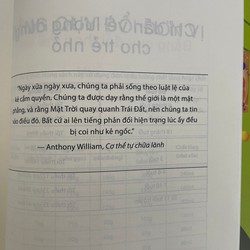 cho trẻ nhỏ
"Ngày xửa ngày xưa, chúng ta phải sống theo luật lệ của
kẻ cầm quyền. Chúng ta được dạy rằng thế giới là một mặt
phẳng, và rằng Mặt Trời quay quanh Trái Đất, nên chúng ta tin
vào điều đó. Bất cứ ai lên tiếng phản đối hiện trạng lúc ấy đều
bị coi như kẻ ngốc."
— Anthony William, Cơ thể tự chữa lành